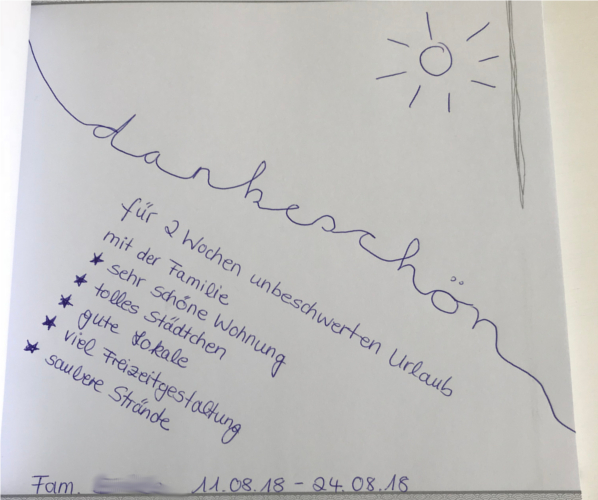 dankeschön
für 2 Wochen unbeschwerten Urlaub
mit der Familie
★ sehr schöne Wohnung
★ tolles Städtchen
★ gute Lokale
★ viel Freizeitgestaltung
★ saubere Strände
Fam. 11.08.18 - 24.08.18